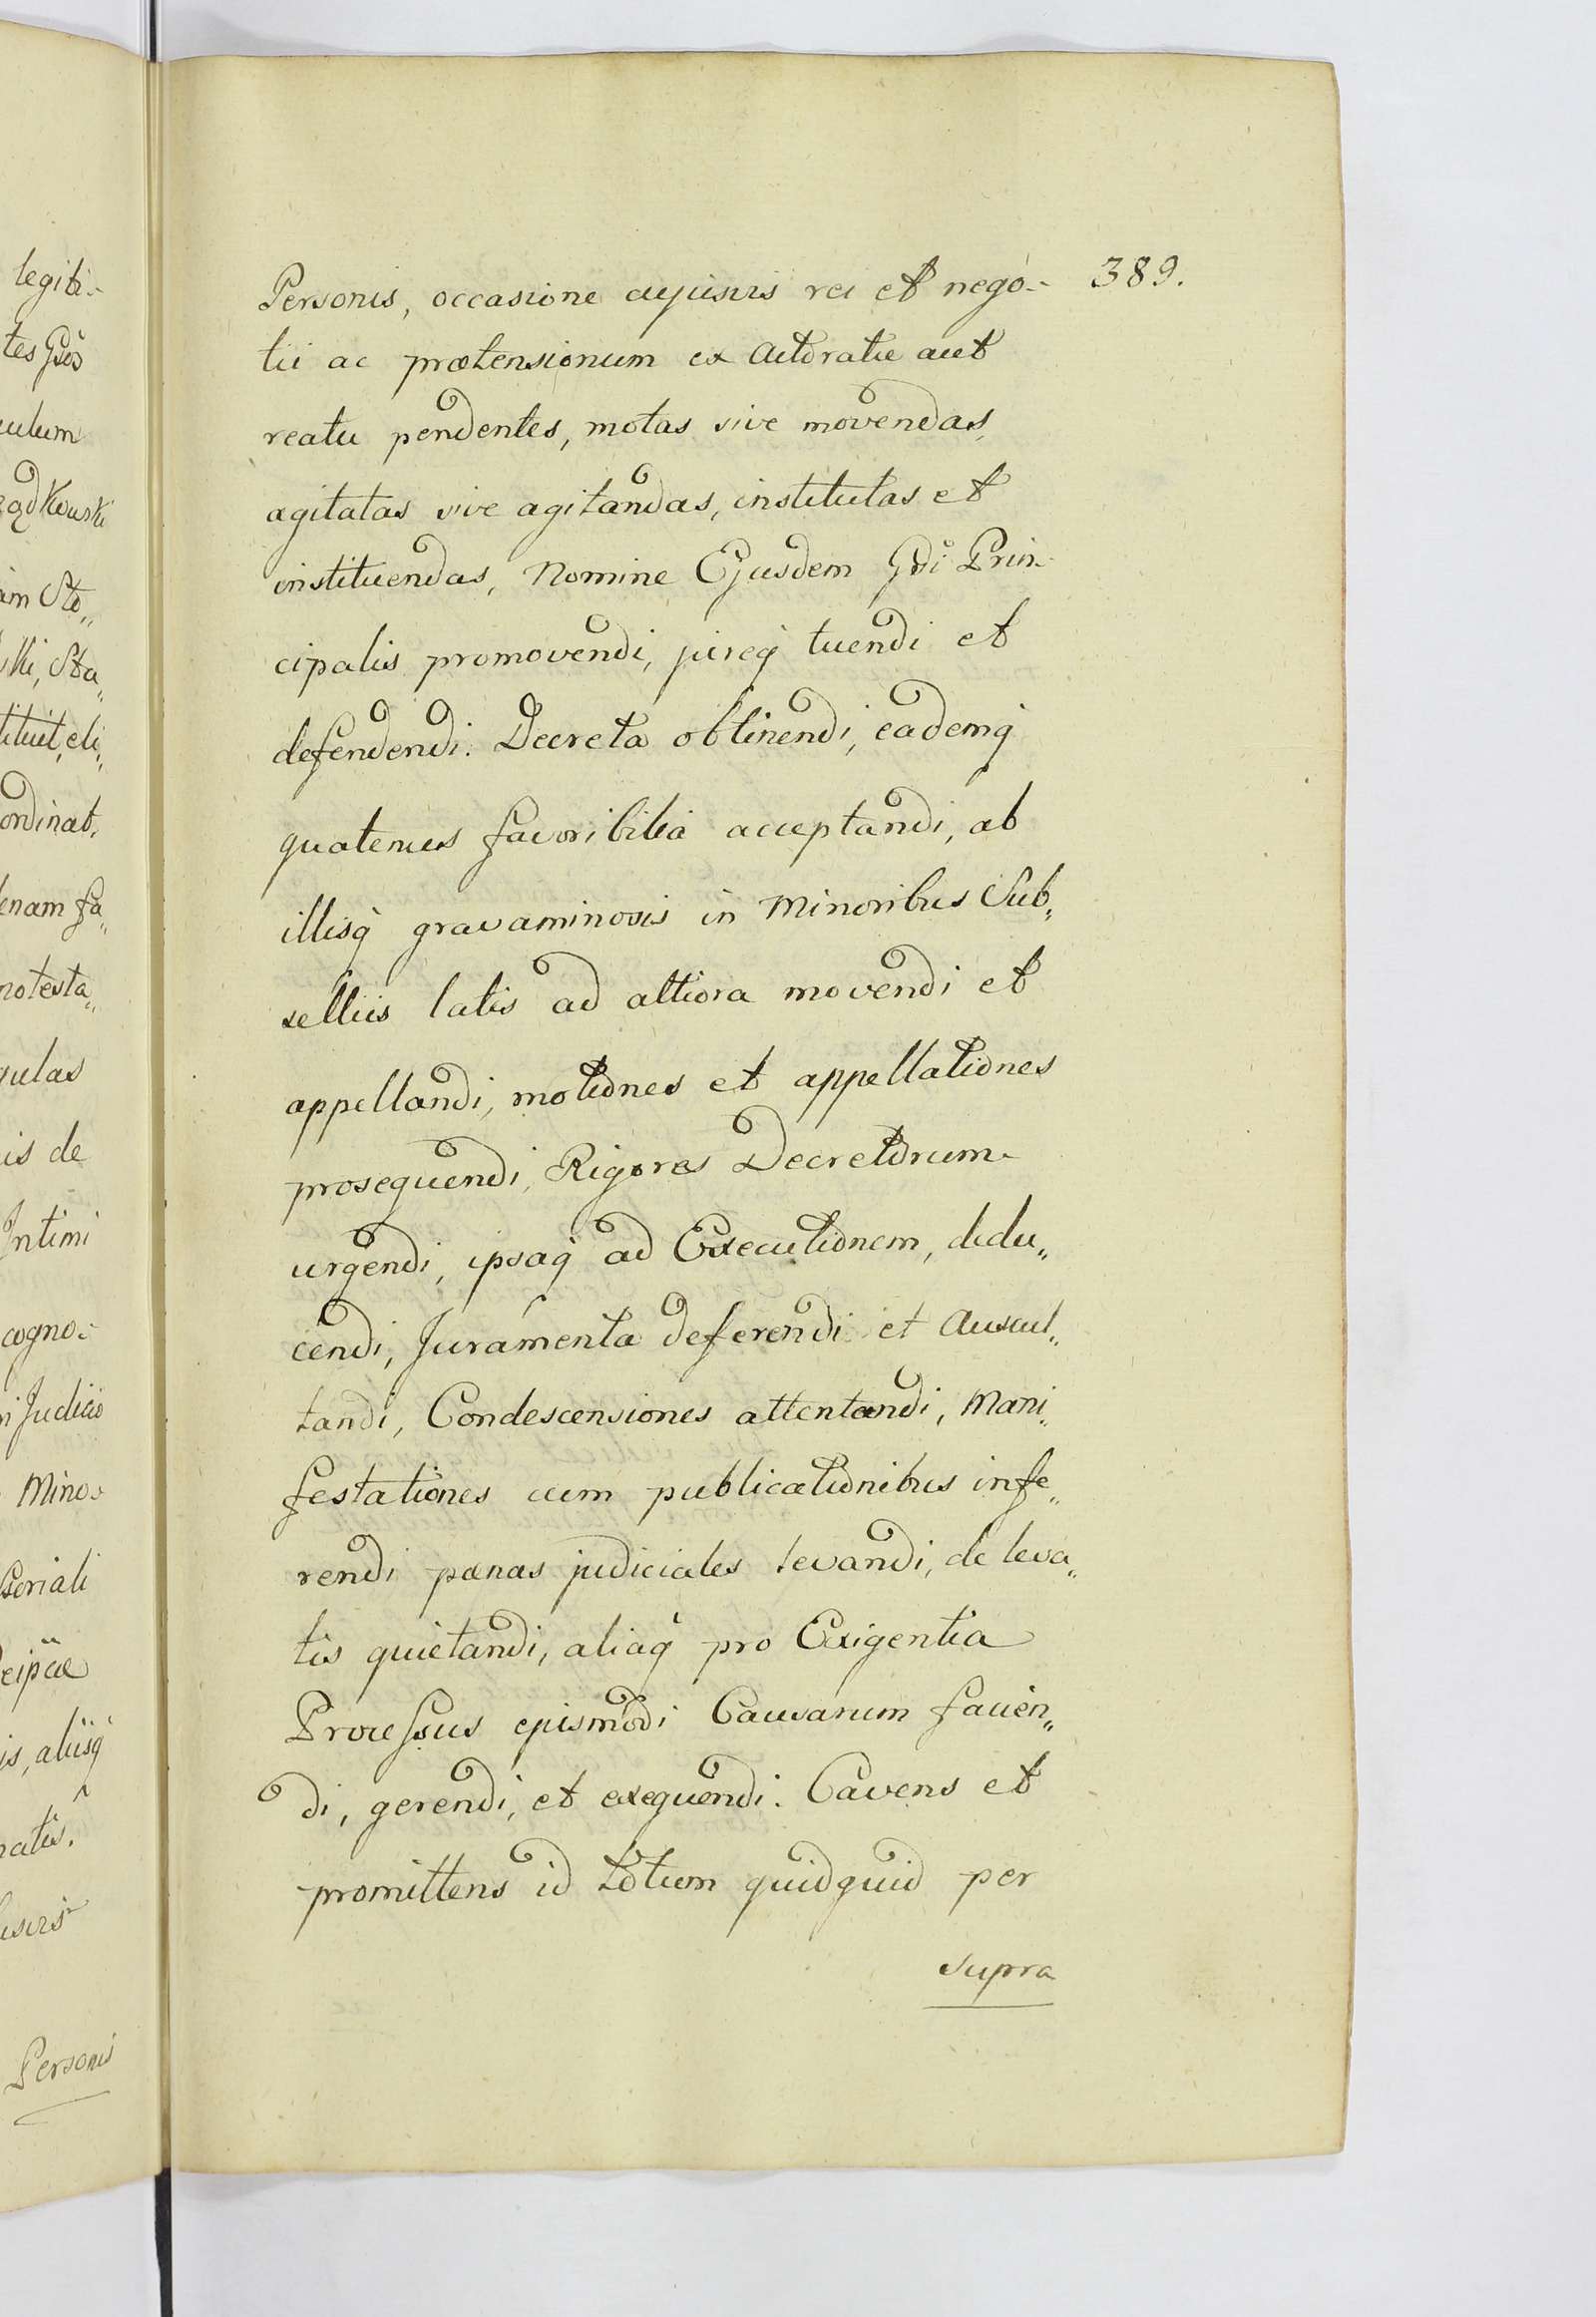 legiti-
tes Gsos
culum
ządkowski
am Sto„
ski, Sta„
tituit, eli„
ordinat,
lenam fa„
notesta„
gulas
is de
Intimi
cogno-
n Judicio
Mino-
seriali
is, aliisq̀
natis.
cusvis
Personis
389.
Personis, occasione cujusvis rei et nego-
tii ac prætensionum ex Actoratu aut
reatu pendentes, motas sive movendas,
agitatas sive agitandas, institutas et
instituendas, Nomine Ejusdem Gdi Prin-
cipalis promovendi, jureq̀ tuendi et
defendendi. Decreta obtinendi, eademq̀
quatenus favoribilia acceptandi, ab
illisq̀ gravaminosis in Minoribus Sub„
selliis latis ad altiora movendi et
appellandi, motiones et appellationes
prosequendi, Rigores Decretorum-
urgendi, ipsaq̀ ad Executionem, dedu„
cendi, Juramenta deferendi et Auscul„
tandi, Condescensiones attentandi, Mani„
festationes cum publicationibus infe„
rendi pænas judiciales levandi, de leva„
tis quietandi, aliaq̀ pro Exigentia
Processus ejusmodi Causarum facien„
di, gerendi, et exequendi. Cavens et
promittens id totum quidquid per
supra